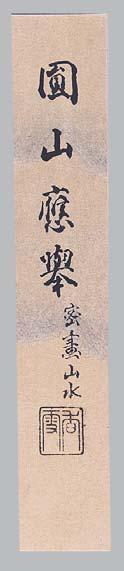 圓山應舉
密畫山水